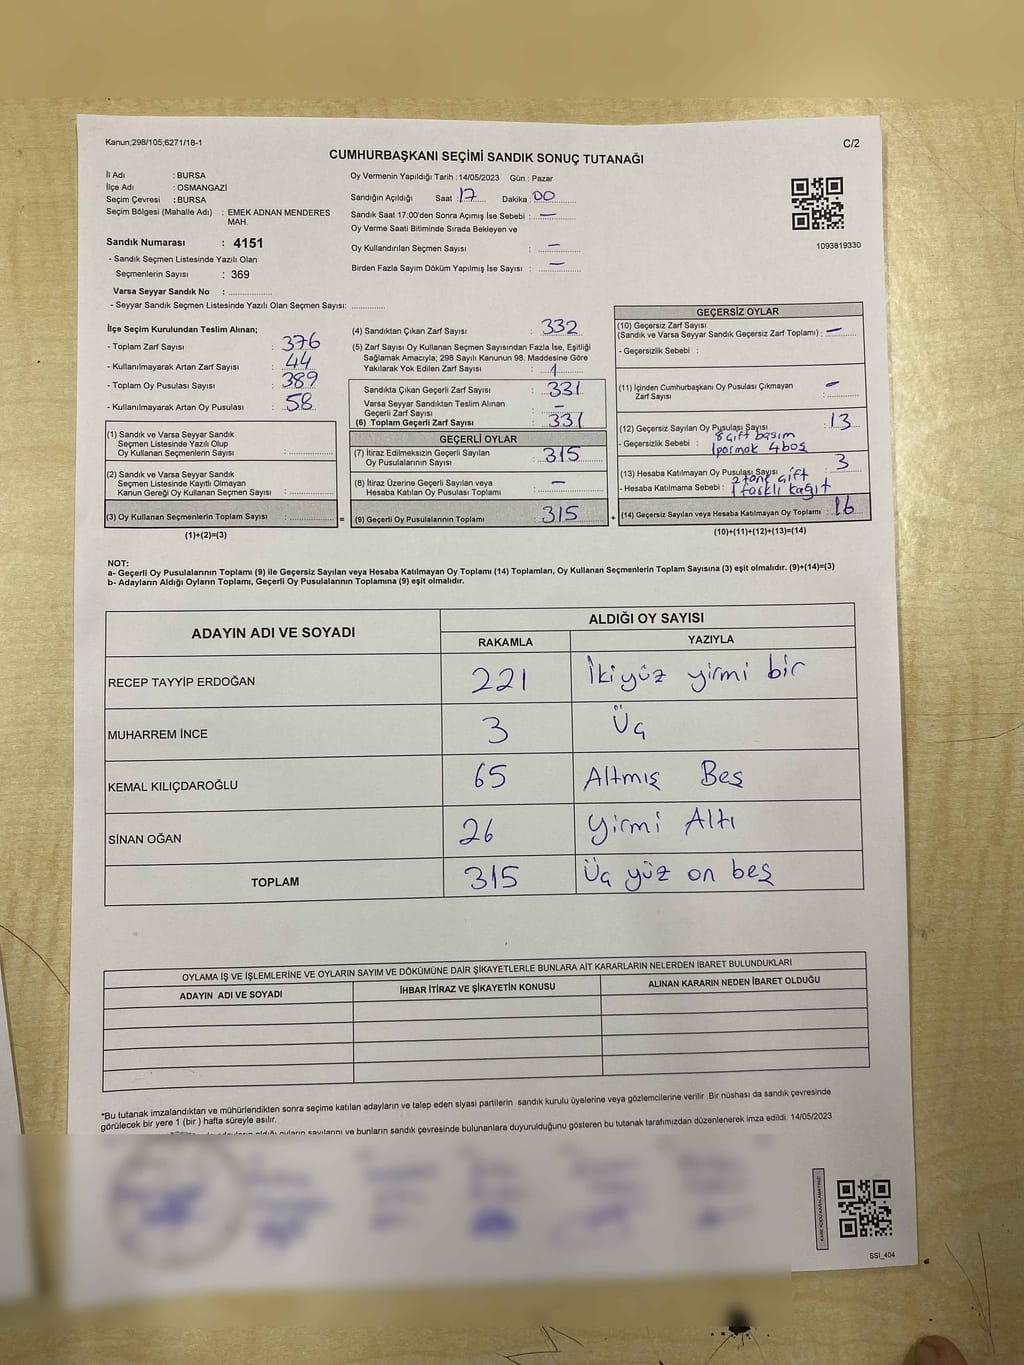 Kanun;298/105;6271/18-1
C/2
CUMHURBAŞKANI SEÇİMİ SANDIK SONUÇ TUTANAĞI
İl Adı : BURSA
İlçe Adı : OSMANGAZİ
Seçim Çevresi : BURSA
Seçim Bölgesi (Mahalle Adı) : EMEK ADNAN MENDERES
MAH.
Sandık Numarası : 4151
- Sandık Seçmen Listesinde Yazılı Olan
Seçmenlerin Sayısı : 369
Varsa Seyyar Sandık No : ..............
- Seyyar Sandık Seçmen Listesinde Yazılı Olan Seçmen Sayısı: ............
Oy Vermenin Yapıldığı Tarih :14/05/2023 Gün : Pazar
Sandığın Açıldığı Saat : 17 Dakika : 00
Sandık Saat 17:00'den Sonra Açımış İse Sebebi : —
Oy Verme Saati Bitiminde Sırada Bekleyen ve
Oy Kullandırılan Seçmen Sayısı : —
Birden Fazla Sayım Döküm Yapılmış İse Sayısı : —
1093819330
İlçe Seçim Kurulundan Teslim Alınan;
- Toplam Zarf Sayısı : 376
- Kullanılmayarak Artan Zarf Sayısı : 44
- Toplam Oy Pusulası Sayısı : 389
- Kullanılmayarak Artan Oy Pusulası : 58
(1) Sandık ve Varsa Seyyar Sandık
Seçmen Listesinde Yazılı Olup
Oy Kullanan Seçmenlerin Sayısı :
(2) Sandık ve Varsa Seyyar Sandık
Seçmen Listesinde Kayıtlı Olmayan
Kanun Gereği Oy Kullanan Seçmen Sayısı :
(3) Oy Kullanan Seçmenlerin Toplam Sayısı :
(1)+(2)=(3)
=
(4) Sandıktan Çıkan Zarf Sayısı : 332
(5) Zarf Sayısı Oy Kullanan Seçmen Sayısından Fazla İse, Eşitliği
Sağlamak Amacıyla; 298 Sayılı Kanunun 98. Maddesine Göre
Yakılarak Yok Edilen Zarf Sayısı : 1
Sandıkta Çıkan Geçerli Zarf Sayısı : 331
Varsa Seyyar Sandıktan Teslim Alınan
Geçerli Zarf Sayısı : —
(6) Toplam Geçerli Zarf Sayısı : 331
GEÇERLİ OYLAR
(7) İtiraz Edilmeksizin Geçerli Sayılan
Oy Pusulalarının Sayısı : 315
(8) İtiraz Üzerine Geçerli Sayılan veya
Hesaba Katılan Oy Pusulası Toplamı : —
(9) Geçerli Oy Pusulalarının Toplamı : 315
+
GEÇERSİZ OYLAR
(10) Geçersiz Zarf Sayısı
(Sandık ve Varsa Seyyar Sandık Geçersiz Zarf Toplamı) : —
- Geçersizlik Sebebi :
(11) İçinden Cumhurbaşkanı Oy Pusulası Çıkmayan
Zarf Sayısı : —
(12) Geçersiz Sayılan Oy Pusulası Sayısı : 13
- Geçersizlik Sebebi : 8 çift basım
1 parmak 4 boş
(13) Hesaba Katılmayan Oy Pusulası Sayısı : 3
2 tane çift
- Hesaba Katılmama Sebebi : 1 farklı kağıt
(14) Geçersiz Sayılan veya Hesaba Katılmayan Oy Toplamı : 16
(10)+(11)+(12)+(13)=(14)
NOT:
a- Geçerli Oy Pusulalarının Toplamı (9) ile Geçersiz Sayılan veya Hesaba Katılmayan Oy Toplamı (14) Toplamları, Oy Kullanan Seçmenlerin Toplam Sayısına (3) eşit olmalıdır. (9)+(14)=(3)
b- Adayların Aldığı Oyların Toplamı, Geçerli Oy Pusulalarının Toplamına (9) eşit olmalıdır.
ADAYIN ADI VE SOYADI
ALDIĞI OY SAYISI
RAKAMLA YAZIYLA
RECEP TAYYİP ERDOĞAN 221 İkiyüz yirmi bir
MUHARREM İNCE 3 Üç
KEMAL KILIÇDAROĞLU 65 Altmış Beş
SİNAN OĞAN 26 Yirmi Altı
TOPLAM 315 Üç yüz on beş
OYLAMA İŞ VE İŞLEMLERİNE VE OYLARIN SAYIM VE DÖKÜMÜNE DAİR ŞİKAYETLERLE BUNLARA AİT KARARLARIN NELERDEN İBARET BULUNDUKLARI
ADAYIN ADI VE SOYADI İHBAR İTİRAZ VE ŞİKAYETİN KONUSU ALINAN KARARIN NEDEN İBARET OLDUĞU
*Bu tutanak imzalandıktan ve mühürlendikten sonra seçime katılan adayların ve talep eden siyasi partilerin sandık kurulu üyelerine veya gözlemcilerine verilir .Bir nüshası da sandık çevresinde
görülecek bir yere 1 (bir ) hafta süreyle asılır.
sayılarını ve bunların sandık çevresinde bulunanlara duyurulduğunu gösteren bu tutanak tarafımızdan düzenlenerek imza edildi. 14/05/2023
SSI_404